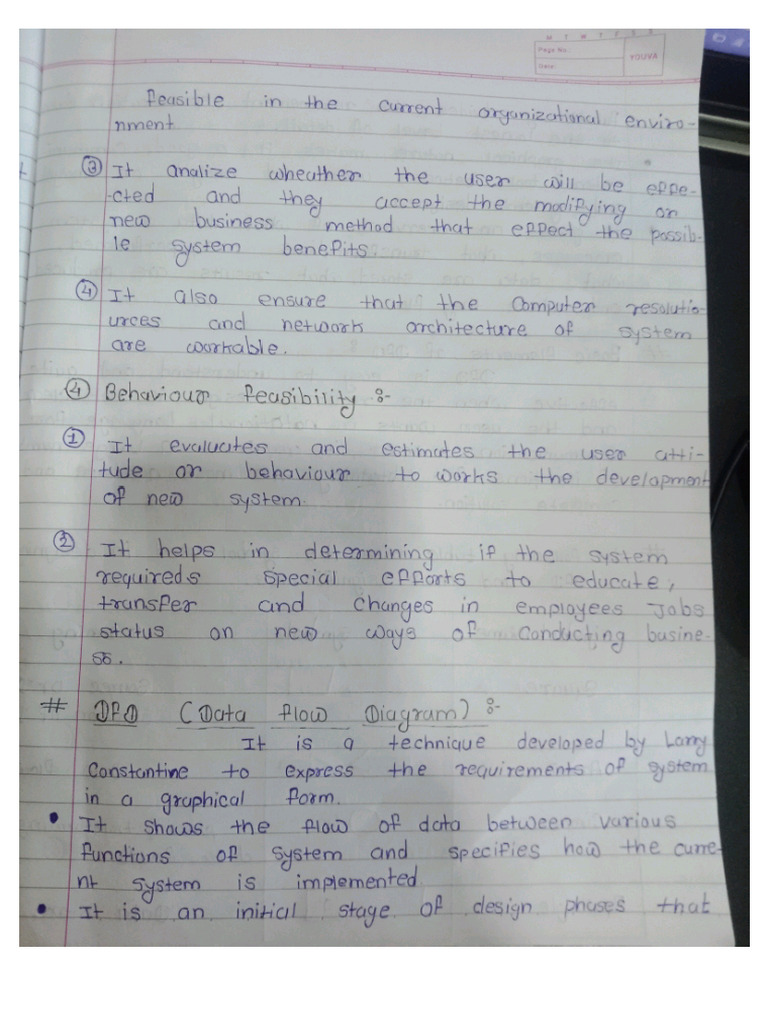 M T W T F S S
Page No.:
Date:
YOUVA
feasible in the current organizational enviro-
nment
③ It analize wheather the user will be effe-
-cted and they accept the modifying or
new business method that effect the possib-
le system benefits.
④ It also ensure that the Computer resolutio-
urces and network architecture of system
are workable.
④ Behaviour feasibility :-
① It evaluates and estimates the user atti-
-tude or behaviour to works the development
of new system.
② It helps in determining if the system
requireds special efforts to educate,
transfer and changes in employees Jobs
status on new ways of Conducting busine-
ss.
# DFD (Data flow Diagram) :-
It is a technique developed by Larry
Constantine to express the requirements of system
in a graphical form.
• It shows the flow of data between various
functions of system and specifies how the curre-
nt system is implemented.
• It is an initial stage of design phases that